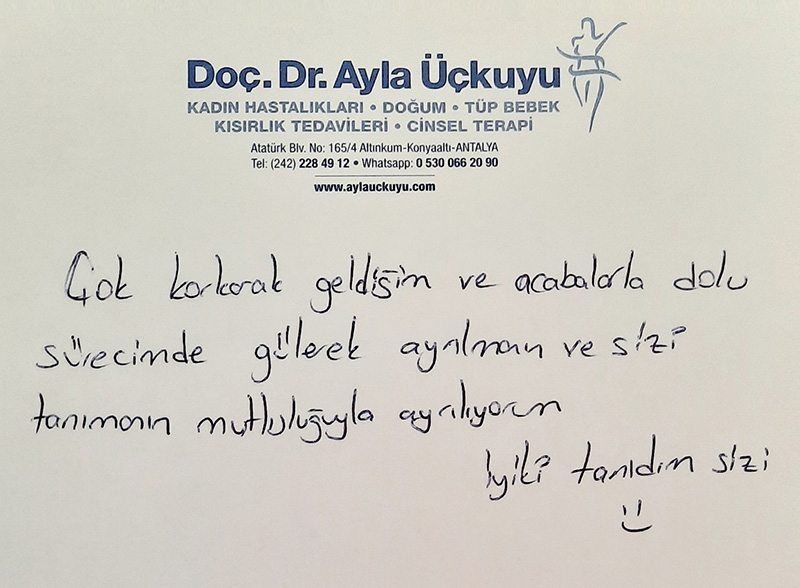 Doç. Dr. Ayla Üçkuyu
KADIN HASTALIKLARI • DOĞUM • TÜP BEBEK
KISIRLIK TEDAVİLERİ • CİNSEL TERAPİ
Atatürk Blv. No: 165/4 Altınkum-Konyaaltı-ANTALYA
Tel: (242) 228 49 12 • Whatsapp: 0 530 066 20 90
www.aylauckuyu.com
Çok korkarak geldiğim ve acabalarla dolu
sürecimde gülerek ayrılmanın ve sizi
tanımanın mutluluğuyla ayrılıyorum
iyiki tanıdım sizi